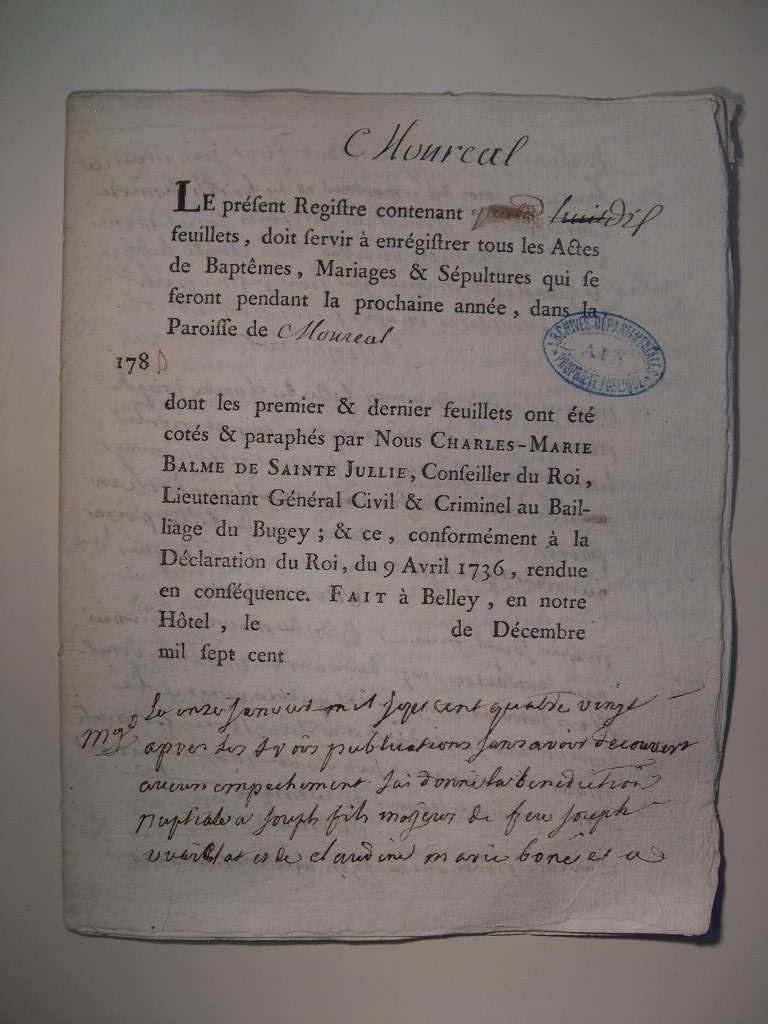 Montreal
LE préſent Regiſtre contenant huit dix
feuillets, doit ſervir à enrégiſtrer tous les Actes
de Baptêmes, Mariages & Sépultures qui ſe
feront pendant la prochaine année, dans la
Paroiſſe de Montreal
ARCHIVES DÉPARTEMENTALES
AIN
PROPRIÉTÉ PUBLIQUE
1780
dont les premier & dernier feuillets ont été
cotés & paraphés par Nous CHARLES-MARIE
BALME DE SAINTE JULLIE, Conſeiller du Roi,
Lieutenant Général Civil & Criminel au Bail-
liage du Bugey ; & ce, conformément à la
Déclaration du Roi, du 9 Avril 1736, rendue
en conſéquence. FAIT à Belley, en notre
Hôtel, le de Décembre
mil ſept cent
Le onze Janvier mil sept cent quatre vingt
mge apres les trois publications sans avoir decouvert
aucun empechement jai donné la benediction
nuptiale a joseph fils majeur de feu joseph
et de claudine marie